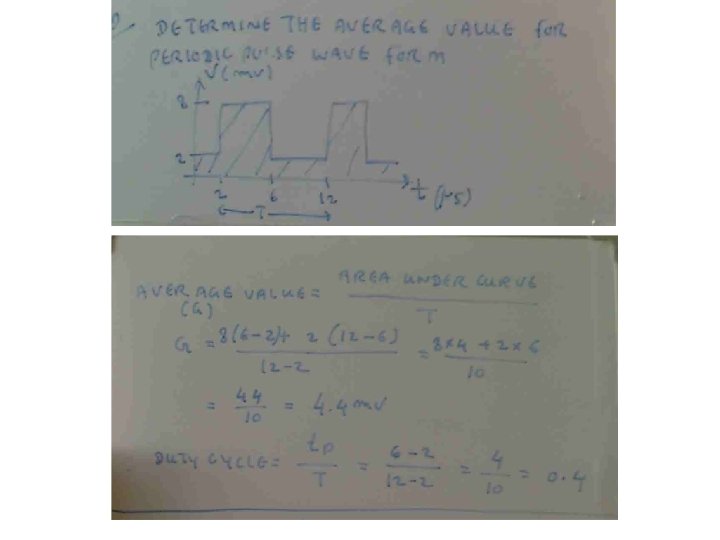 DETERMINE THE AVERAGE VALUE for
PERIODIC PULSE WAVE forM
V(mv)
8
2
2 6 12
T
t (μs)
AVERAGE VALUE = AREA UNDER CURVE / T
(G)
G = 8(6-2)+ 2 (12-6) / 12-2 = 8×4 +2×6 / 10
= 44 / 10 = 4.4 mv
DUTY CYCLE = tp / T = 6-2 / 12-2 = 4 / 10 = 0.4